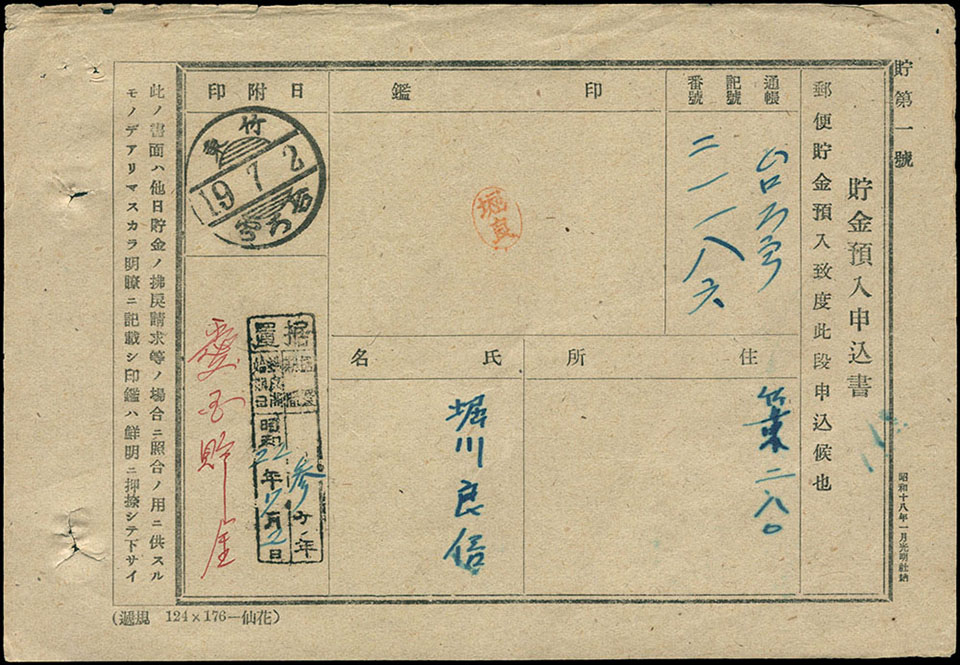 貯第一號
貯金預入申込書
郵便貯金預入致度此段申込候也
昭和十八年一月光明社納
通帳
記號
番號
二一一八六
印鑑
堀
日附印
竹東
19 7 2
台
住所
二八〇
氏名
堀川良信
据置
昭和22年7月2日
参ヶ年
愛國貯金
此ノ書面ハ他日貯金ノ拂戻請求等ノ場合ニ照合ノ用ニ供スル
モノデアリマスカラ明瞭ニ記載シ印鑑ハ鮮明ニ押捺シテ下サイ
(遞規 124×176—仙花)